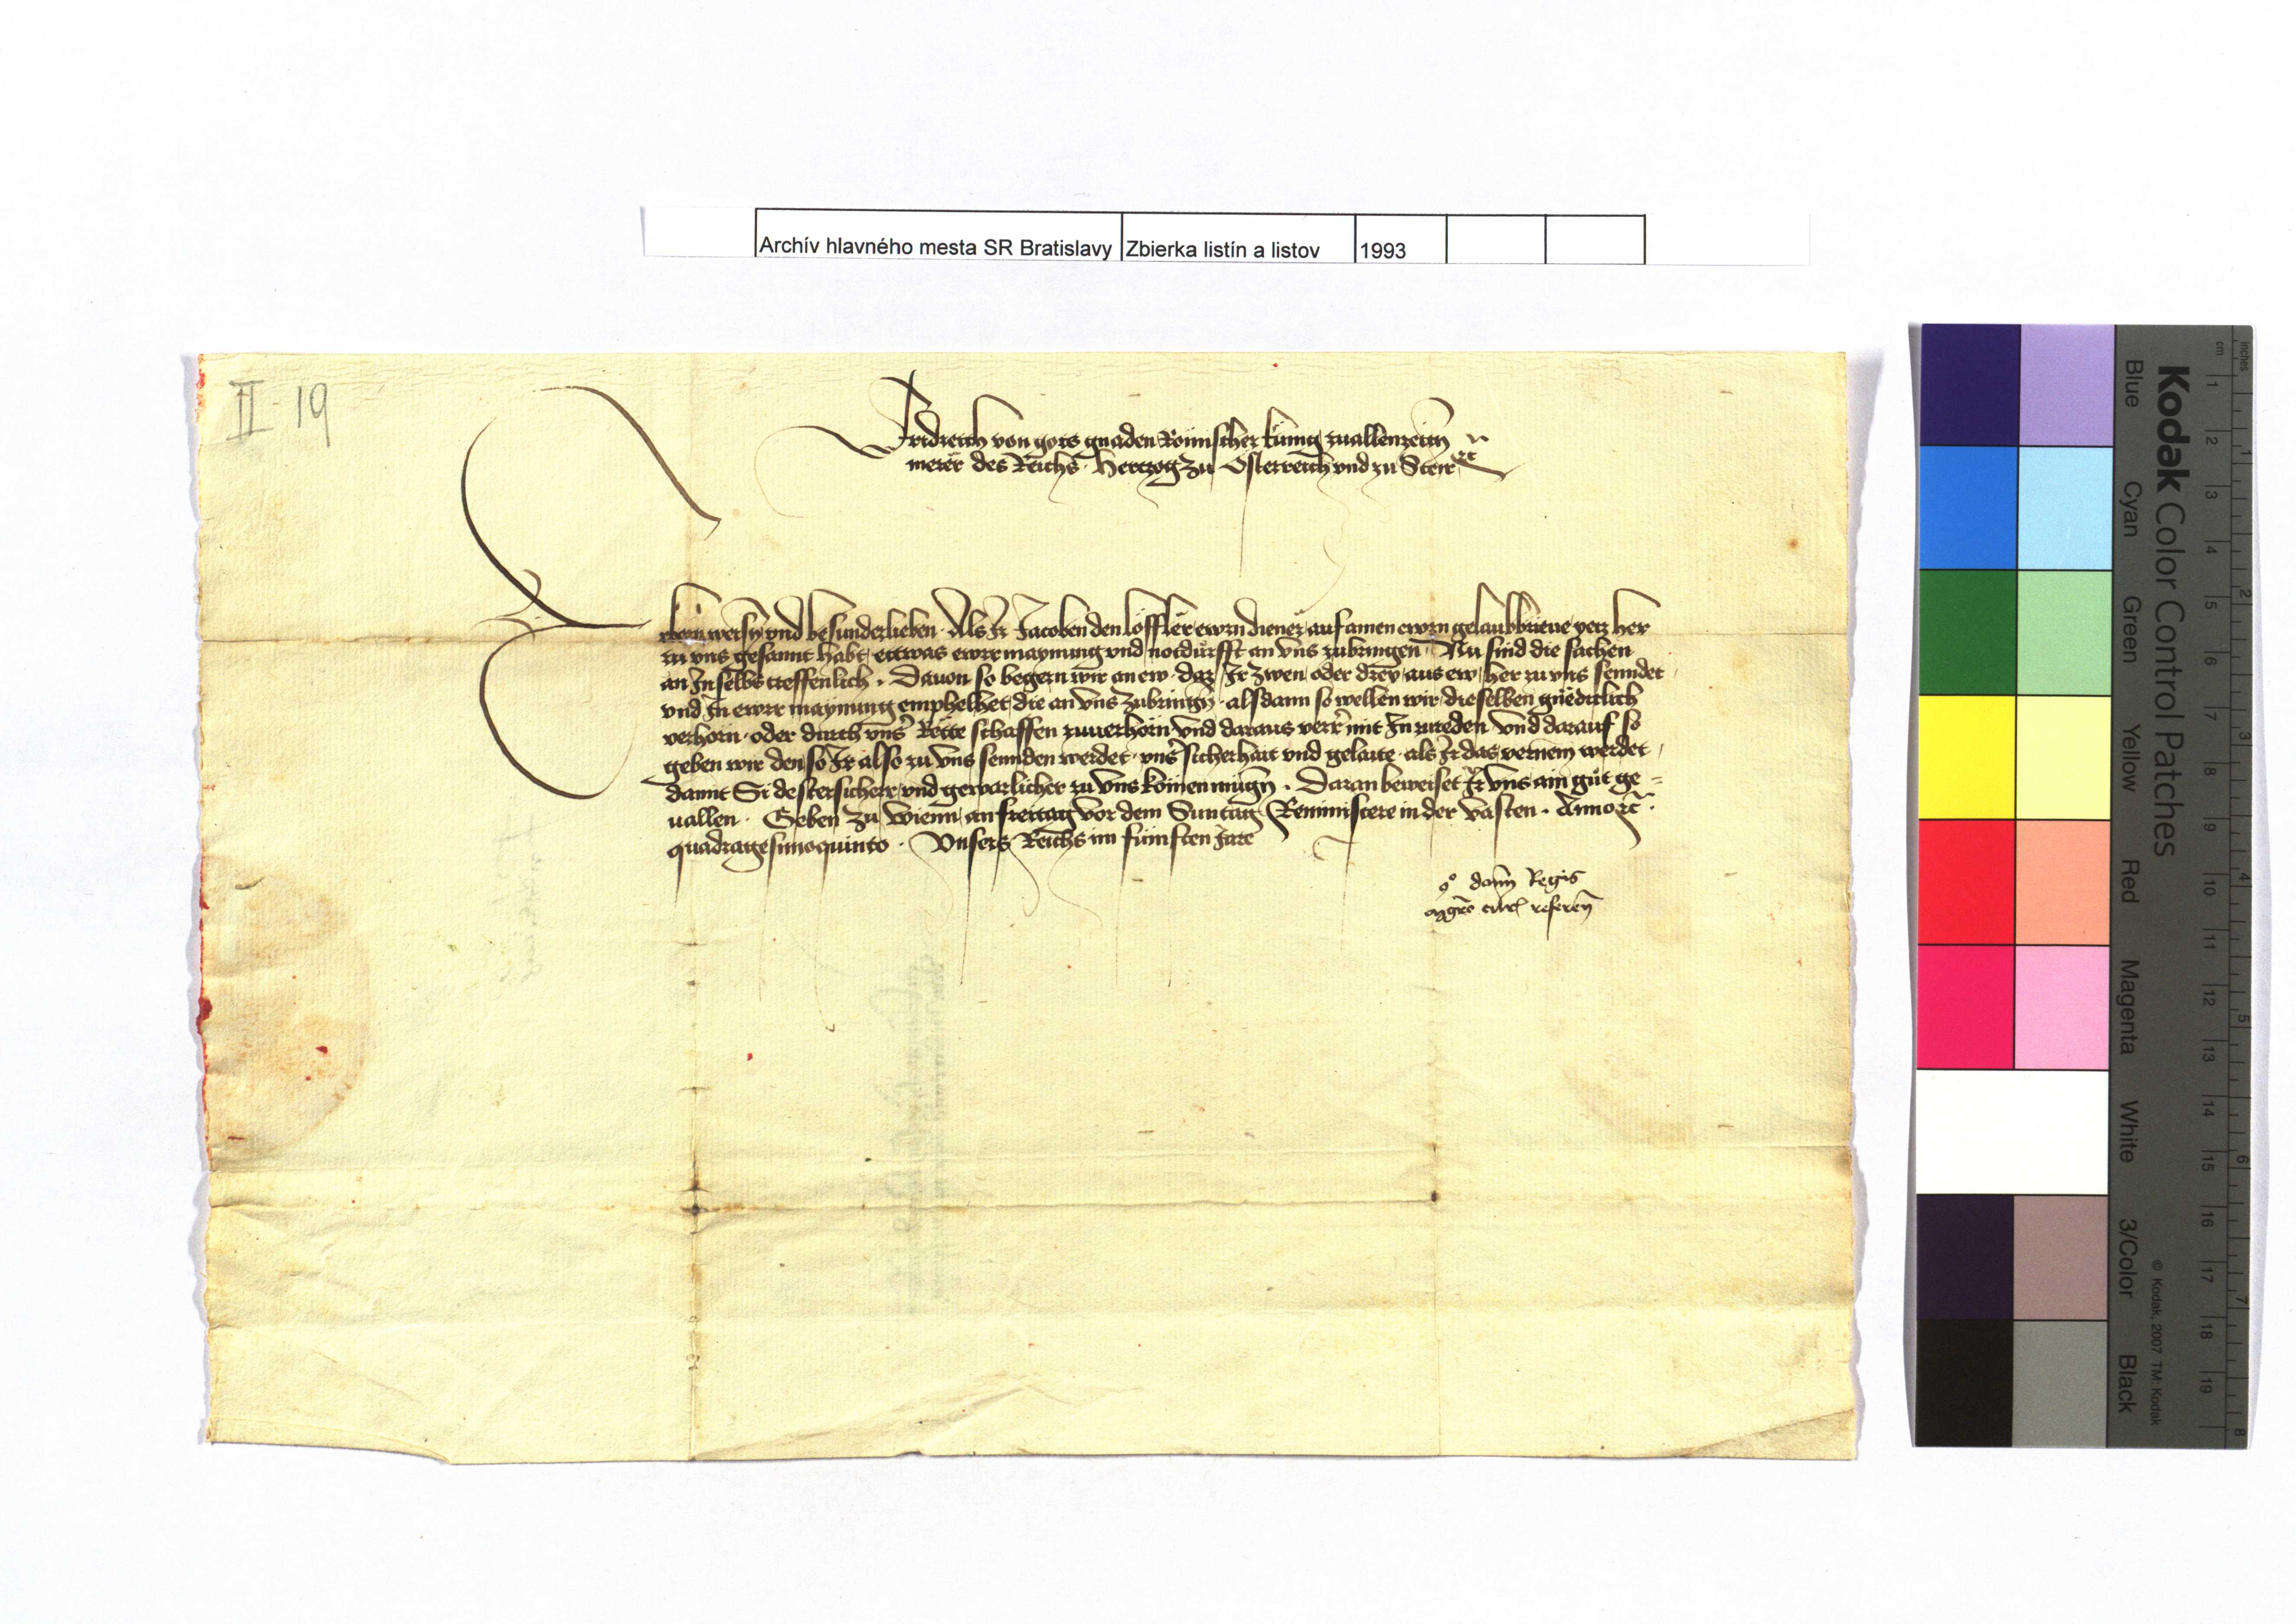 Archív hlavného mesta SR Bratislavy Zbierka listín a listov 1993
II-19
Fridreich von gots gnaden Römischer künig zuallenzeitn
merer des Reichs · Hertzog zu Österreich und zu Steir etc
Erbern weisn und besunderlieben · Als Ir Jacoben den Löffler ewrn diener auf ainen ewrn gelaubbrieue yetz her
zu uns gesannt habt, ettwas ewrr maynung und notdürfft an uns zubringen · Nu sind die sachen
an In selbs treffenlich · Dauon so begern wir an ew · daz Ir zwen oder drey aus ew her zu uns senndet
und In ewrr maynung emphelhet die an uns zubringn · alsdann so wellen wir dieselben gnëdiclich
verhörn · oder durch unser Rëtte schaffen zuuerhörn und daraus verrer mit In zureden und darauf so
geben wir den so Ir also zu uns sennden werdet · unser sicherhait und gelaite · als Ir das vernem werdet
damit Si destersicherr und gewarlicher zu uns komen mugn · Daran beweiset Ir uns ain güt ge=
uallen · Geben zu Wienn an freitag vor dem Suntag Reminiscere in der vasten · Anno etc
quadragesimoquinto · Unsers Reichs im fünften Jare
dom Regis
referen
Kodak Color Control Patches
Blue Cyan Green Yellow Red Magenta White 3/Color Black
© Kodak, 2007 TM: Kodak
inches 1 2 3 4 5 6 7 8
cm 1 2 3 4 5 6 7 8 9 10 11 12 13 14 15 16 17 18 19